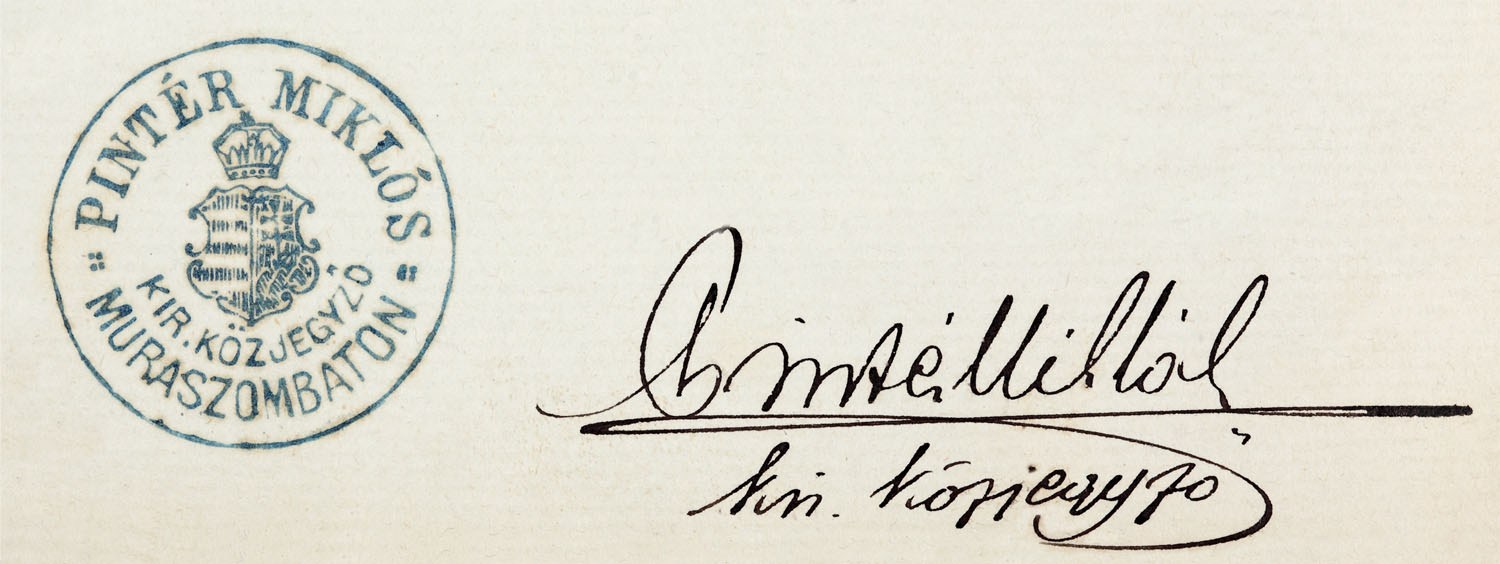 PINTÉR MIKLÓS
KIR. KÖZJEGYZŐ
MURASZOMBATON
Pintér Miklós
kir. közjegyző